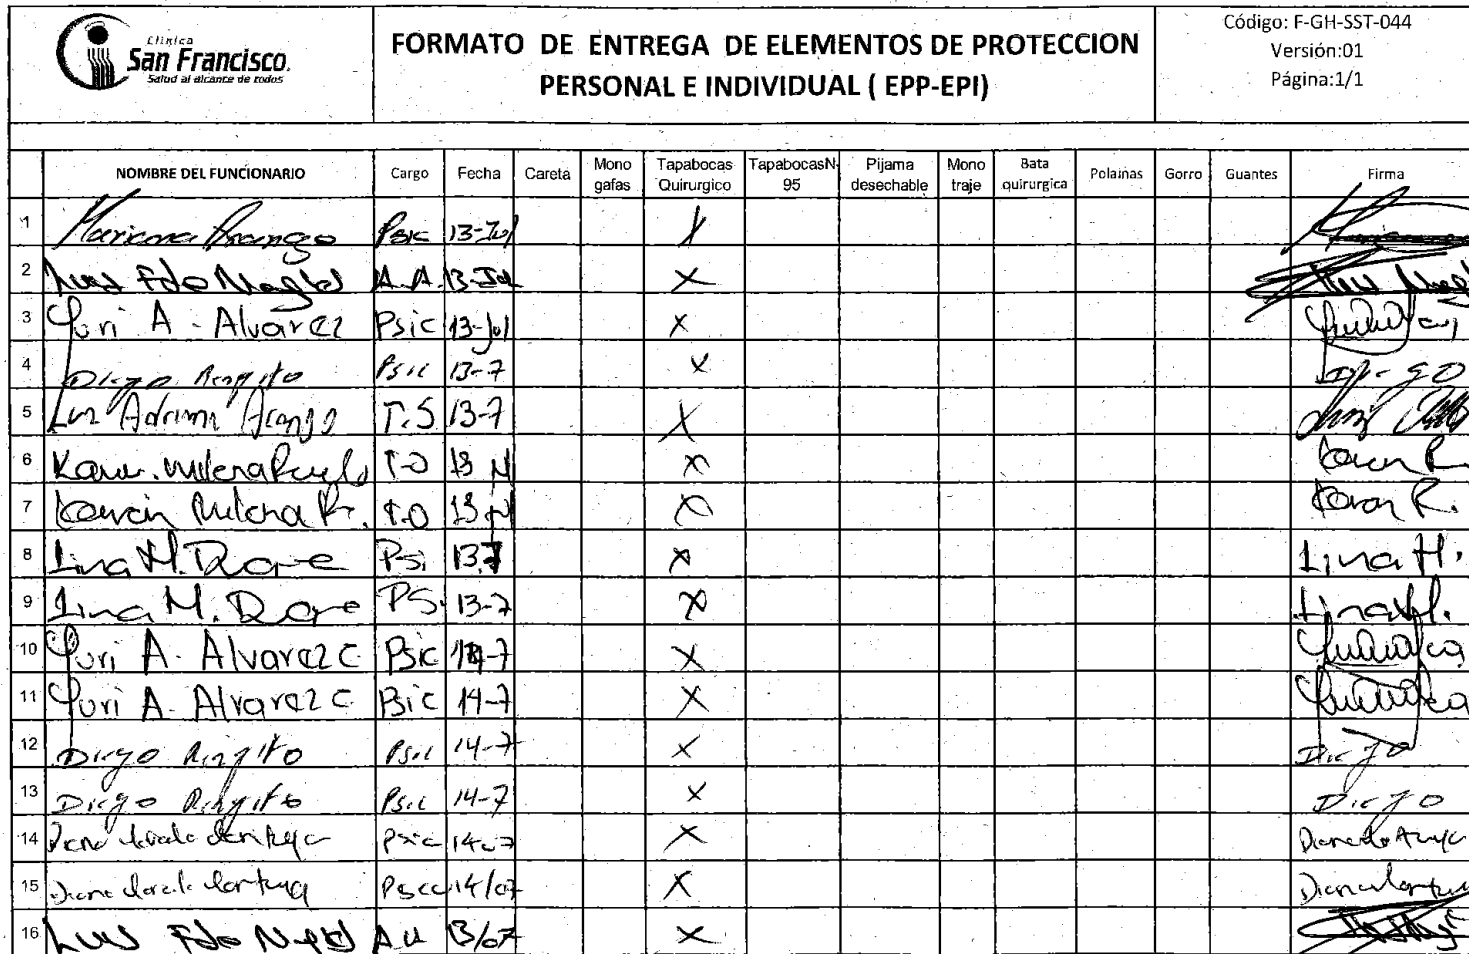 Clínica
San Francisco.
Salud al alcance de todos
FORMATO DE ENTREGA DE ELEMENTOS DE PROTECCION
PERSONAL E INDIVIDUAL ( EPP-EPI)
Código: F-GH-SST-044
Versión:01
Página:1/1
NOMBRE DEL FUNCIONARIO Cargo Fecha Careta Mono gafas Tapabocas Quirurgico TapabocasN-95 Pijama desechable Mono traje Bata quirurgica Polainas Gorro Guantes Firma
1 Mariana Arango Psic 13-Jul X
2 Luis Fdo A.A. 13-Jul X
3 Yuri A - Alvarez Psic 13-Jul X
4 Diego Psic 13-7 X Diego
5 Luz Adriana Arango T.S 13-7 X
6 Milena T-O 13 X Karen R.
7 Karen Milena R. T.O 13 Jul X Karen R.
8 Lina M. Psi 13-7 X Lina M.
9 Lina M. PS. 13-7 X Lina M.
10 Yuri A. Alvarez C Psic 14-7 X
11 Yuri A. Alvarez C Psic 14-7 X
12 Diego Psic 14-7 X Diego
13 Diego Psic 14-7 X Diego
14 Psic 14-07 X
15 Diana Psic 14/07 X Diana
16 Luis Fdo 13/07 X